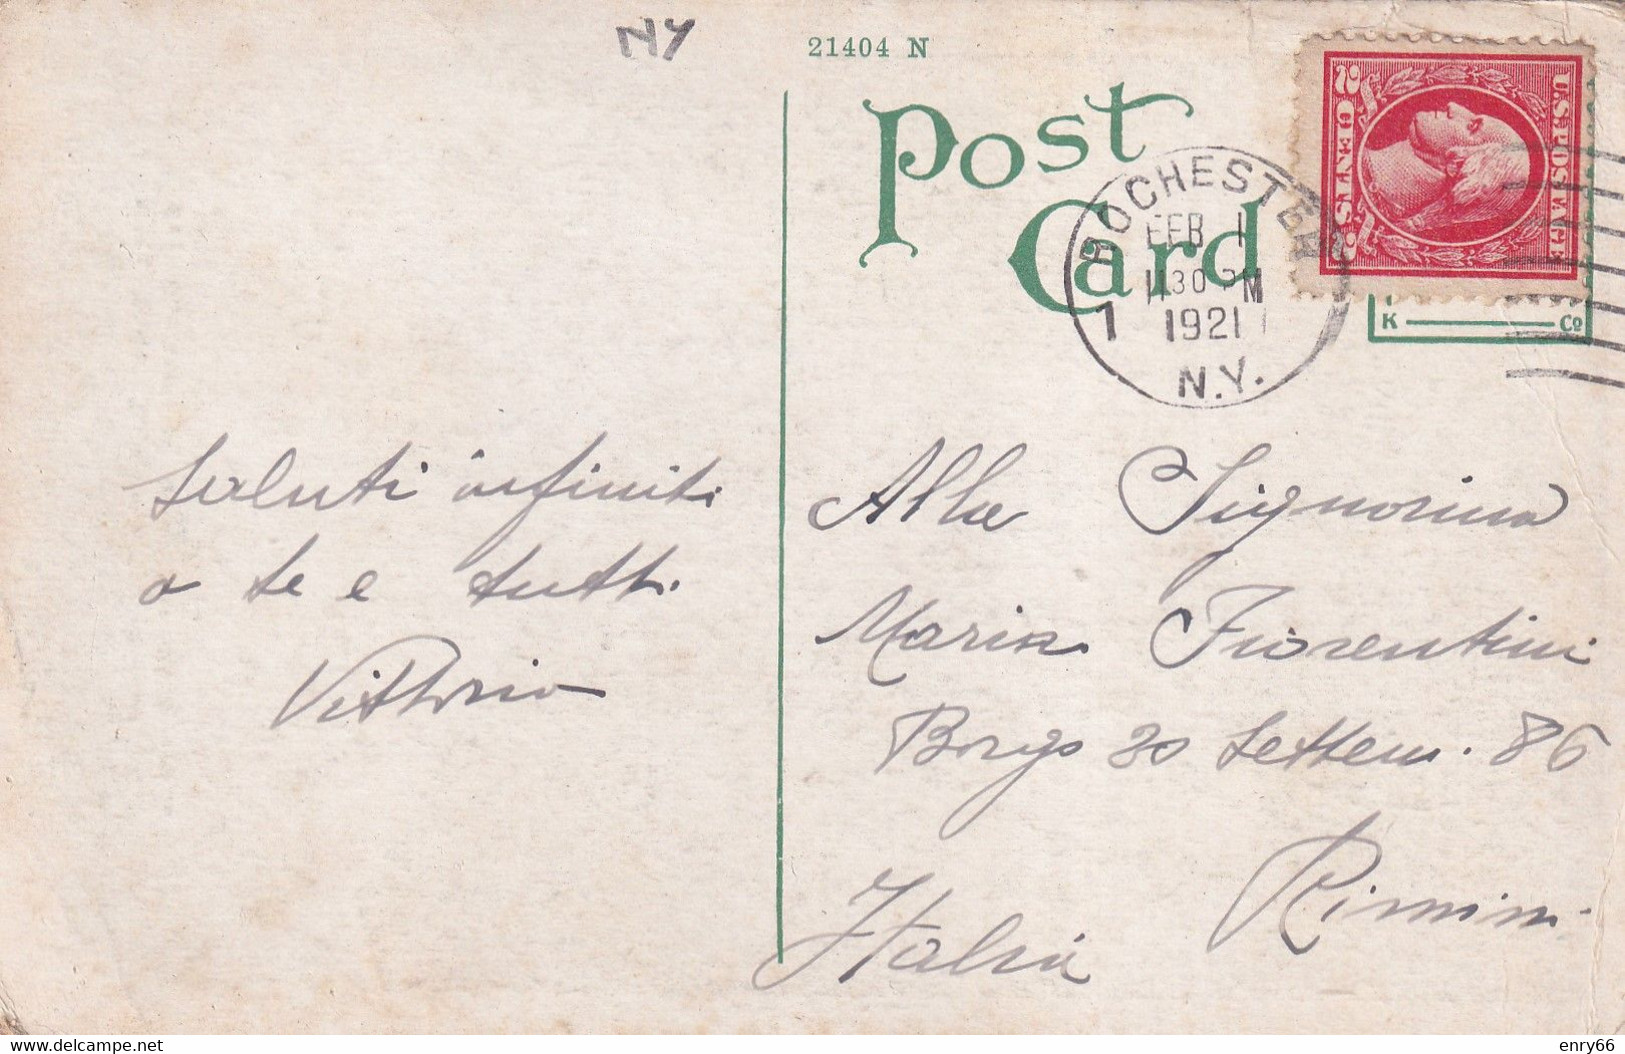 NY
21404 N
Post
Card
U.S. POSTAGE
2 CENTS 2
ROCHESTER
FEB 1
11 30 PM
1921
1
N.Y.
K Co
Saluti infiniti
a te e tutti.
Vittorio
Alla Signorina
Maria Fiorentini
Borgo 20 Settem. 86
Rimini
Italia
www.delcampe.net
enry66